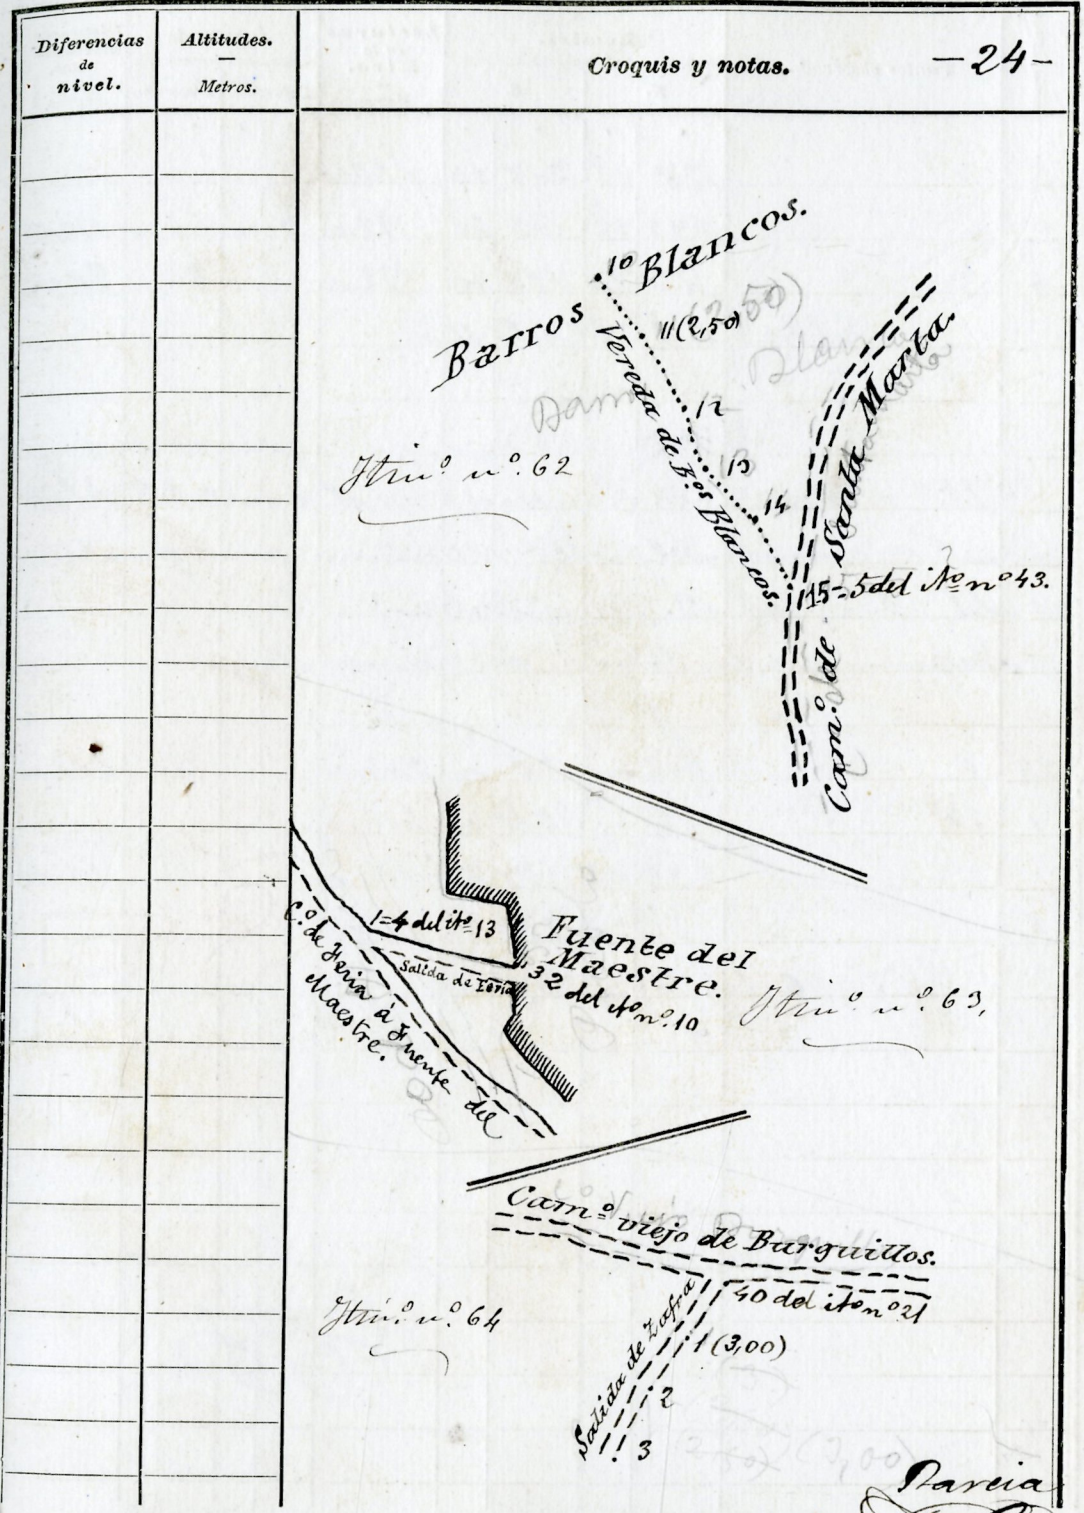 Diferencias
de
nivel.
Altitudes.
Metros.
Croquis y notas.
-24-
Barros Blancos.
10
11 (2,50)
12
13
14
Vereda de B.os Blancos.
Itin.º n.º 62
15=5 del it.º nº 43.
Cam.º de Santa Marta.
1=4 del it.º 13
Salida de Feria
Fuente del
Maestre.
32 del it.º n.º 10
C.º de Feria á Fuente del
Maestre.
Itin.º n.º 63,
Cam.º viejo de Burguillos.
40 del it.º nº 21
Itin.º n.º 64
Salida de Zafra
1 (3,00)
2
3